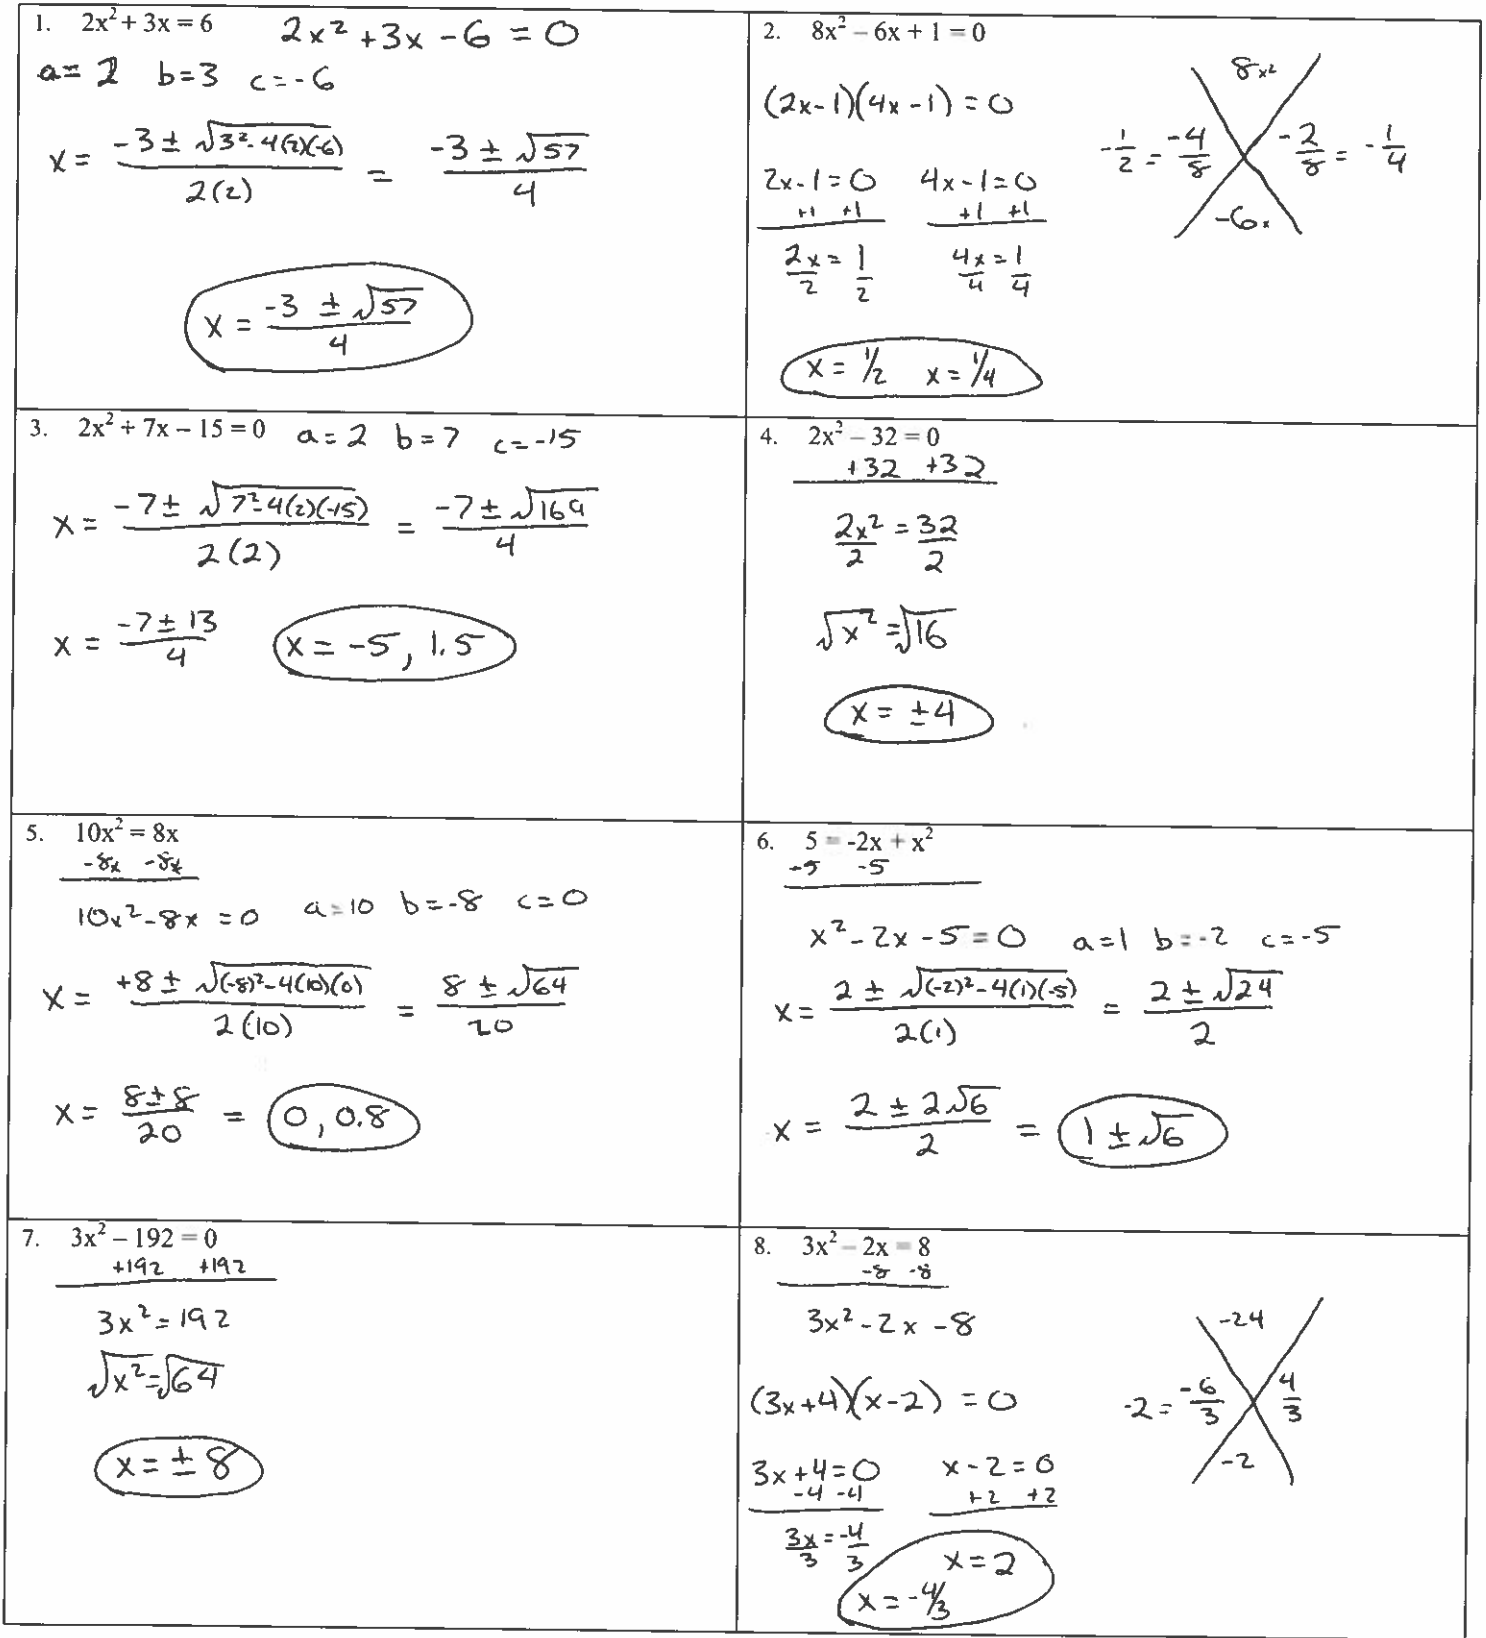 1. 2x² + 3x = 6 2x² + 3x - 6 = 0
a = 2 b = 3 c = -6
x = (-3 ± √(3² - 4(2)(-6)))/(2(2)) = (-3 ± √57)/4
x = (-3 ± √57)/4
2. 8x² – 6x + 1 = 0
8x²
(2x-1)(4x-1) = 0
-1/2 = -4/8 -2/8 = -1/4
-6x
2x-1=0 4x-1=0
+1 +1 +1 +1
2x/2 = 1/2 4x/4 = 1/4
x = 1/2 x = 1/4
3. 2x² + 7x – 15 = 0 a = 2 b = 7 c = -15
x = (-7 ± √(7² - 4(2)(-15)))/(2(2)) = (-7 ± √169)/4
x = (-7 ± 13)/4 x = -5, 1.5
4. 2x² – 32 = 0
+32 +32
2x²/2 = 32/2
√x² = √16
x = ±4
5. 10x² = 8x
-8x -8x
10x² - 8x = 0 a = 10 b = -8 c = 0
x = (+8 ± √((-8)² - 4(10)(0)))/(2(10)) = (8 ± √64)/20
x = (8 ± 8)/20 = 0, 0.8
6. 5 = -2x + x²
-5 -5
x² - 2x - 5 = 0 a = 1 b = -2 c = -5
x = (2 ± √((-2)² - 4(1)(-5)))/(2(1)) = (2 ± √24)/2
x = (2 ± 2√6)/2 = 1 ± √6
7. 3x² – 192 = 0
+192 +192
3x² = 192
√x² = √64
x = ± 8
8. 3x² – 2x = 8
-8 -8
3x² - 2x - 8
-24
(3x+4)(x-2) = 0
-2 = -6/3 4/3
-2
3x+4=0 x-2=0
-4 -4 +2 +2
3x/3 = -4/3 x = 2
x = -4/3